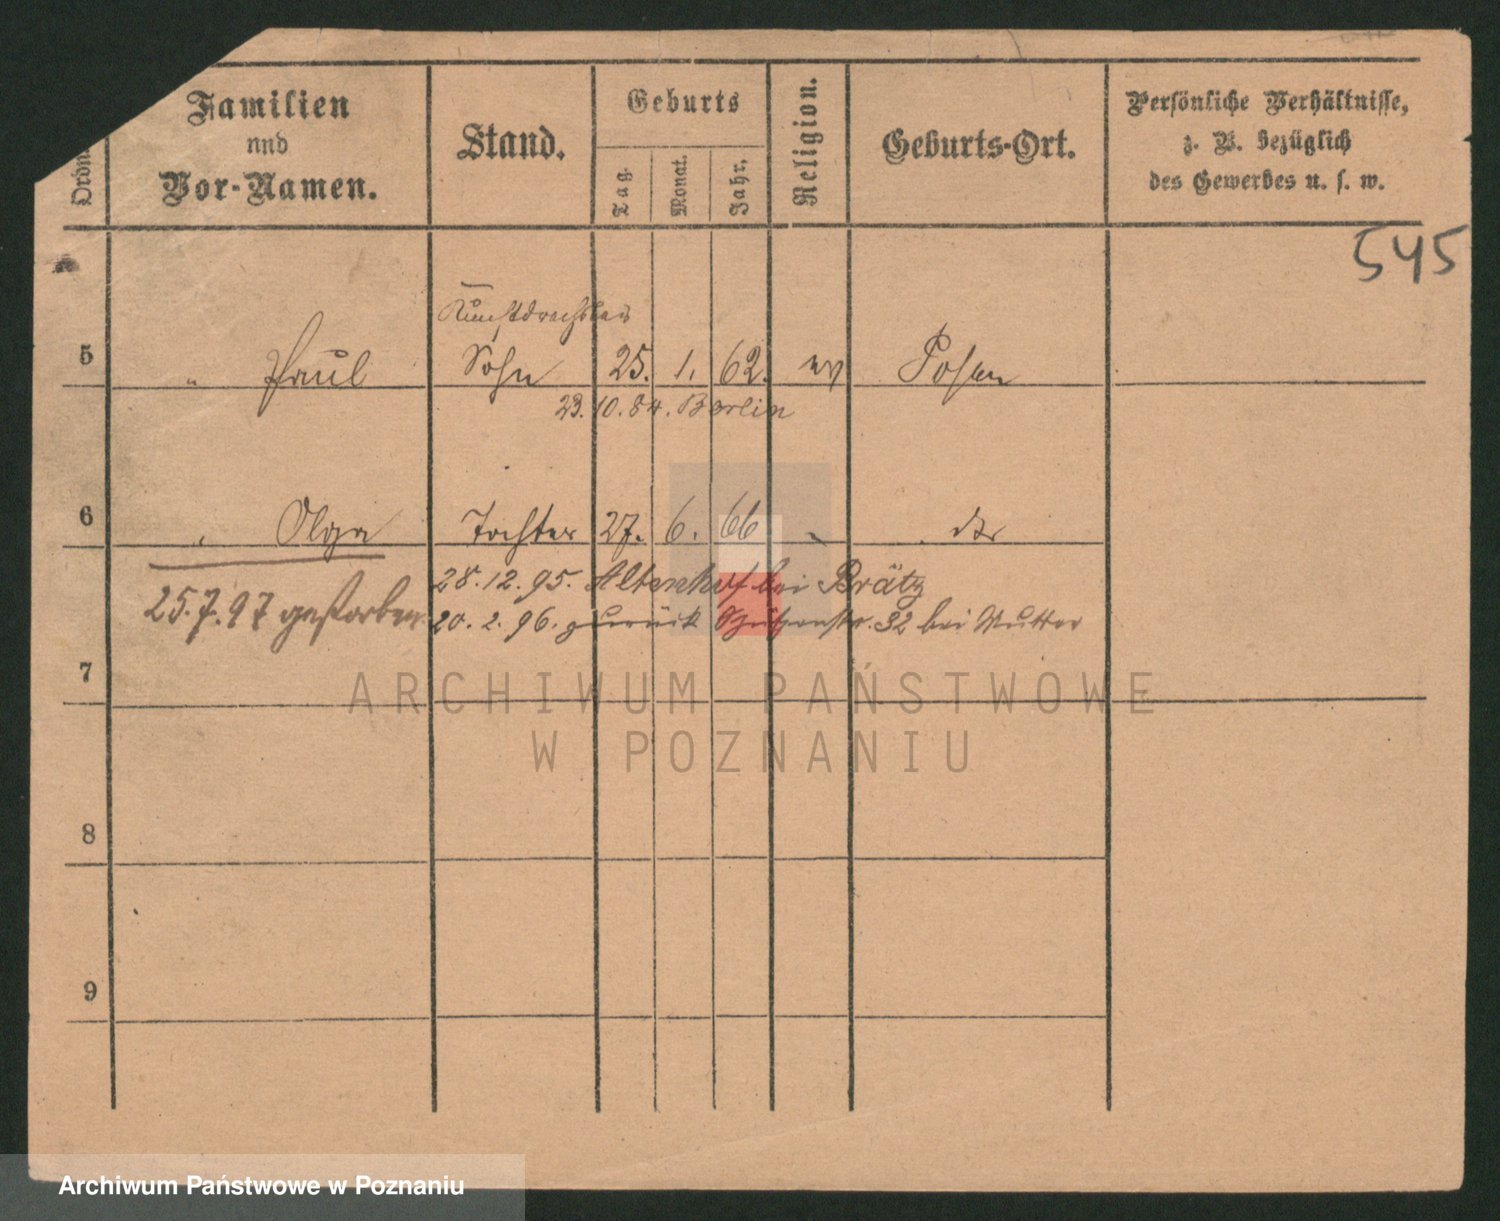 Ordn.
Familien
und
Vor-Namen.
Stand.
Geburts
Tag.
Monat.
Jahr.
Religion.
Geburts-Ort.
Persönliche Verhältnisse,
z. B. bezüglich
des Gewerbes u. s. w.
545
Kunstdrechsler
5 " Paul Sohn 25. 1. 62. ev Posen
23. 10. 84. Berlin
6 " Olga Tochter 27. 6. 66 " dto
28. 12. 95. Altenhof bei Brätz
25.7.97 gestorben 20. 2. 96. zurück Schützenstr. 32 bei Mutter
7
ARCHIWUM PAŃSTWOWE
W POZNANIU
8
9
Archiwum Państwowe w Poznaniu